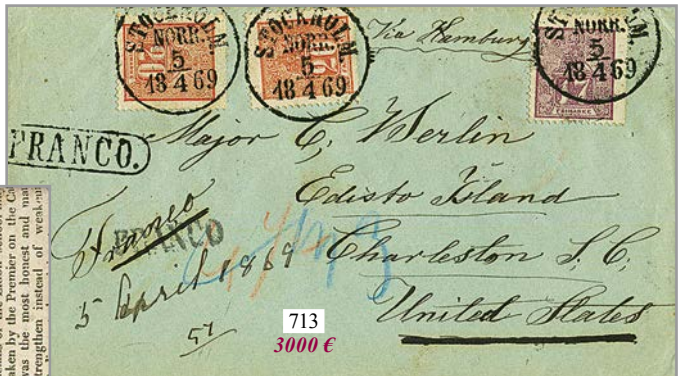 STOCKHOLM.
NORR.
5
4
1869
STOCKHOLM.
NORR.
5
4
1869
STOCKHOLM.
NORR.
5
4
1869
Via Hamburg
FRANCO.
Major C, Werlin
Edisto Island
Charleston S. C,
United States
Franco
FRANCO
5 April 1869
57
713
3000 €
taken by the Premier on the
was the most honest and
strengthen instead of